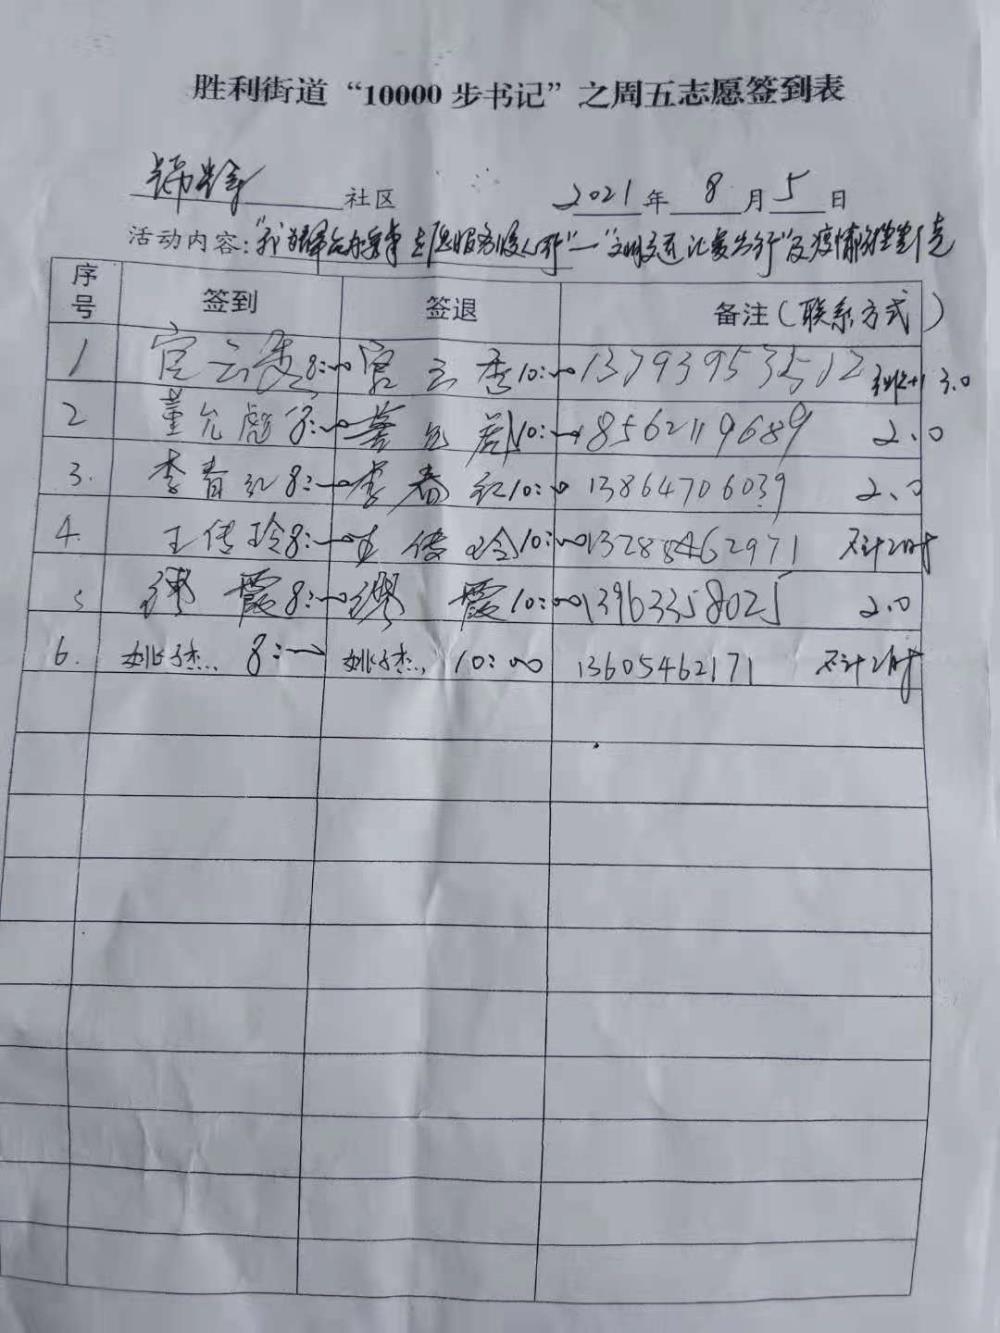 胜利街道“10000步书记”之周五志愿签到表
锦华社区 2021年8月5日
活动内容:“我为群众办实事 志愿服务暖人心”—“文明交通 让爱出行”及疫情防控宣传
序号 签到 签退 备注(联系方式)
1 宫云香 8:00 宫云香 10:00 13793953512 3.0
2 董允彪 8:00 董允彪 10:00 18562119689 2.0
3. 李春红 8:00 李春红 10:00 13864706039 2.0
4. 王传玲 8:00 王传玲 10:00 13288462971 不计时
5 缪霞 8:00 缪霞 10:00 13963358025 2.0
6. 姚子杰 8:00 姚子杰 10:00 13605462171 不计时